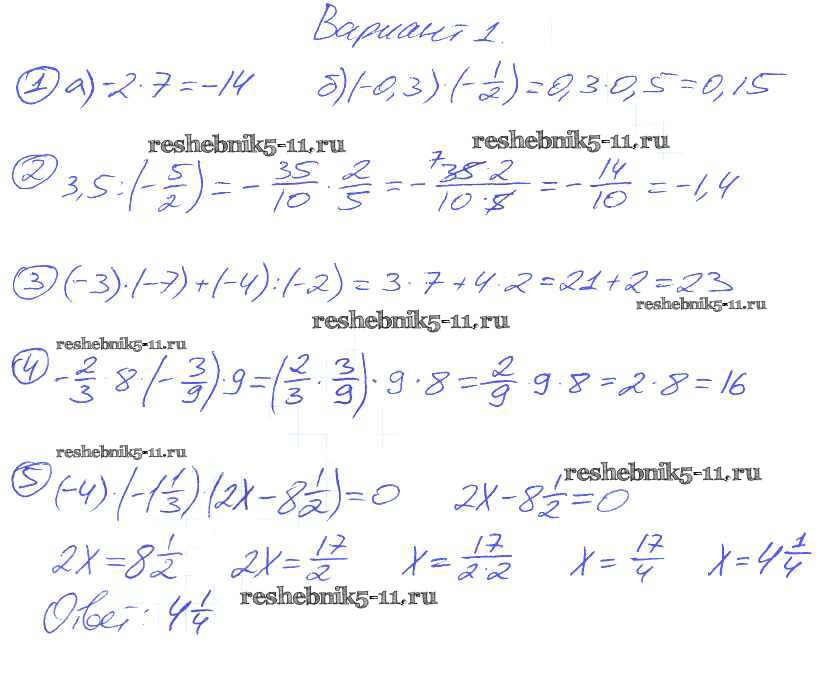 Вариант 1.
① а) -2 · 7 = -14 б) (-0,3) · (-1/2) = 0,3 · 0,5 = 0,15
reshebnik5-11.ru reshebnik5-11.ru
② 3,5 : (-5/2) = -35/10 · 2/5 = -(7 35 · 2)/(10 · 5) = -14/10 = -1,4
③ (-3) · (-7) + (-4) : (-2) = 3 · 7 + 4 · 2 = 21 + 2 = 23
reshebnik5-11.ru
reshebnik5-11.ru
reshebnik5-11.ru
④ -2/3 · 8 · (-3/9) · 9 = (2/3 · 3/9) · 9 · 8 = 2/9 · 9 · 8 = 2 · 8 = 16
reshebnik5-11.ru
reshebnik5-11.ru
⑤ (-4) · (-1 1/3) · (2x - 8 1/2) = 0 2x - 8 1/2 = 0
2x = 8 1/2 2x = 17/2 x = 17/(2 · 2) x = 17/4 x = 4 1/4
Ответ: 4 1/4
reshebnik5-11.ru